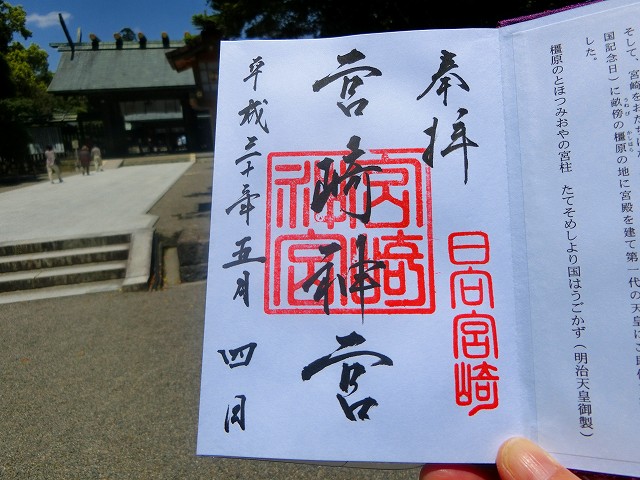 そして、宮崎をおた
国記念日）に畝傍の橿原の地に宮殿を建て第一代の天皇にご即
した。
橿原のとほつみおやの宮柱　たてそめしより国はうごかず（明治天皇御製）
奉拝
日向宮崎
宮崎神宮
宮崎神宮
平成三十年五月四日